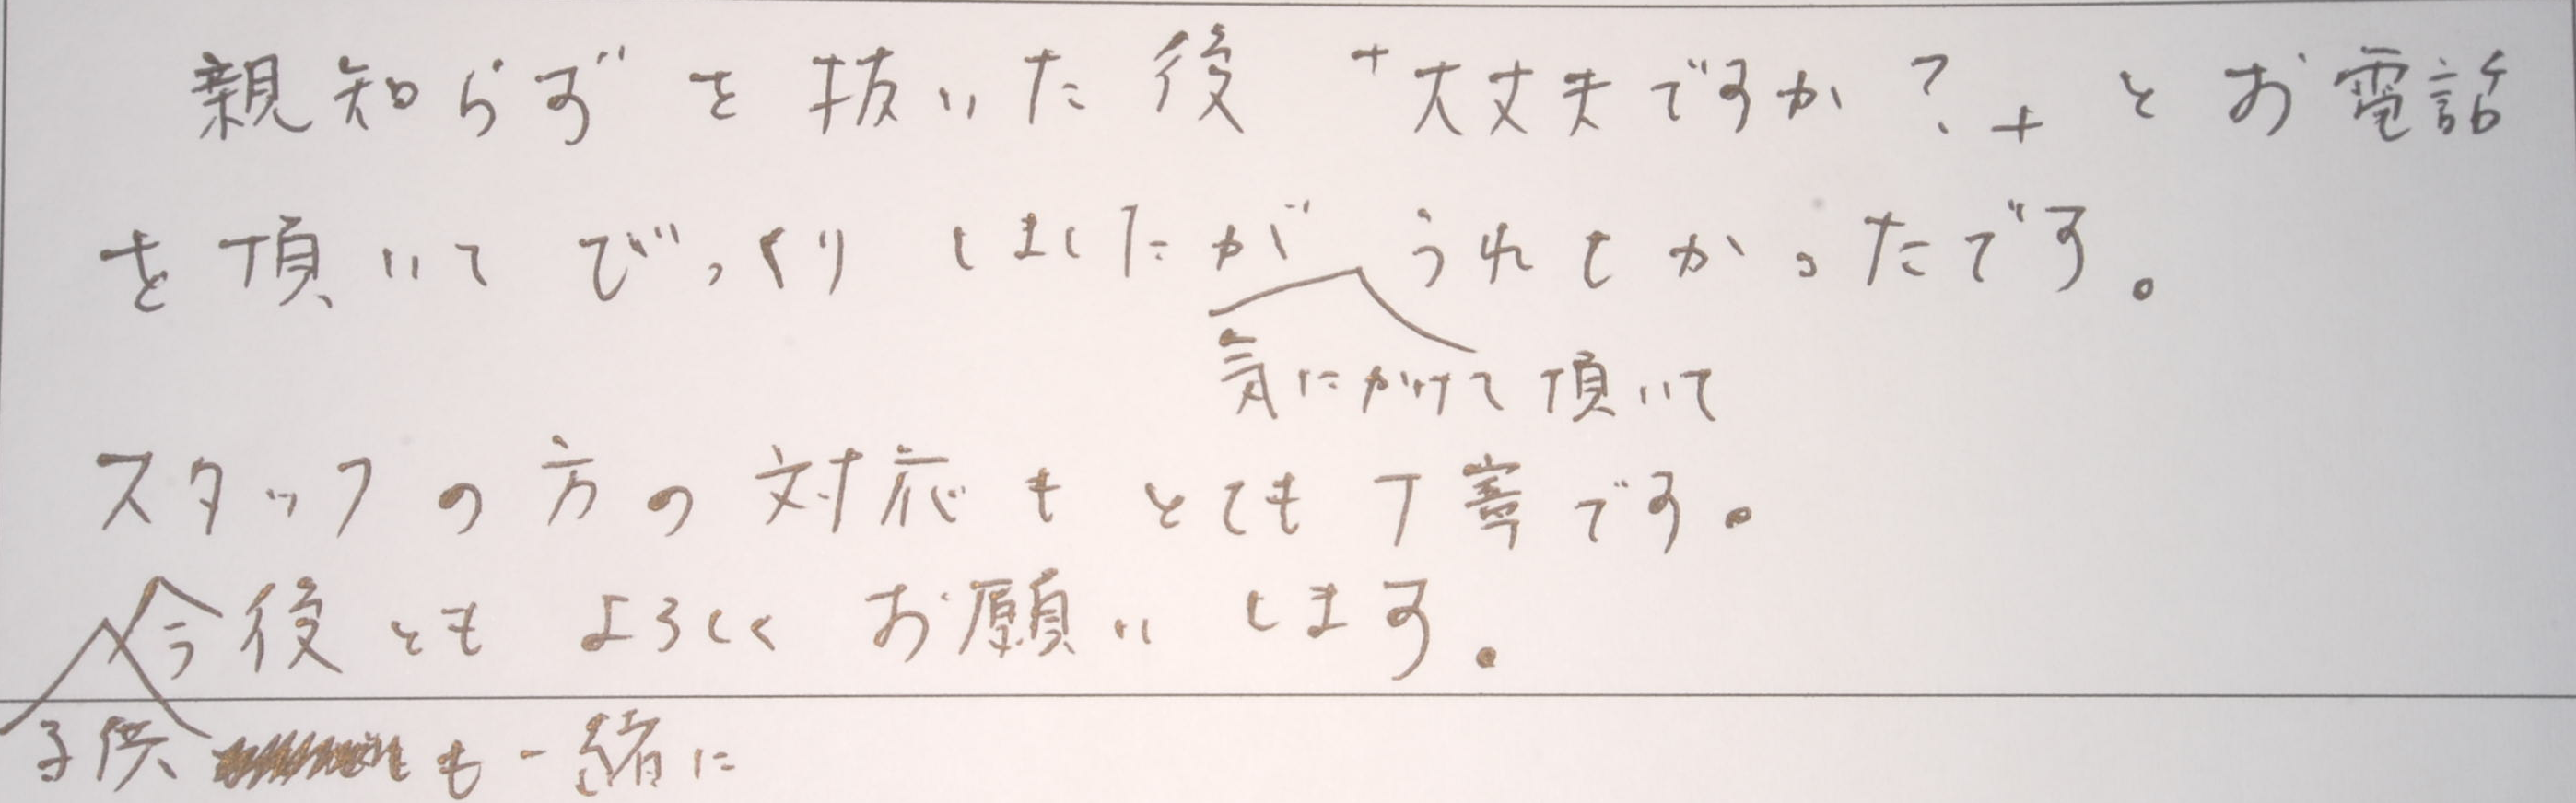 親知らずを抜いた後 "大丈夫ですか？" とお電話
を頂いてびっくりしましたがうれしかったです。
気にかけて頂いて
スタッフの方の対応もとても丁寧です。
今後ともよろしくお願いします。
子供も一緒に